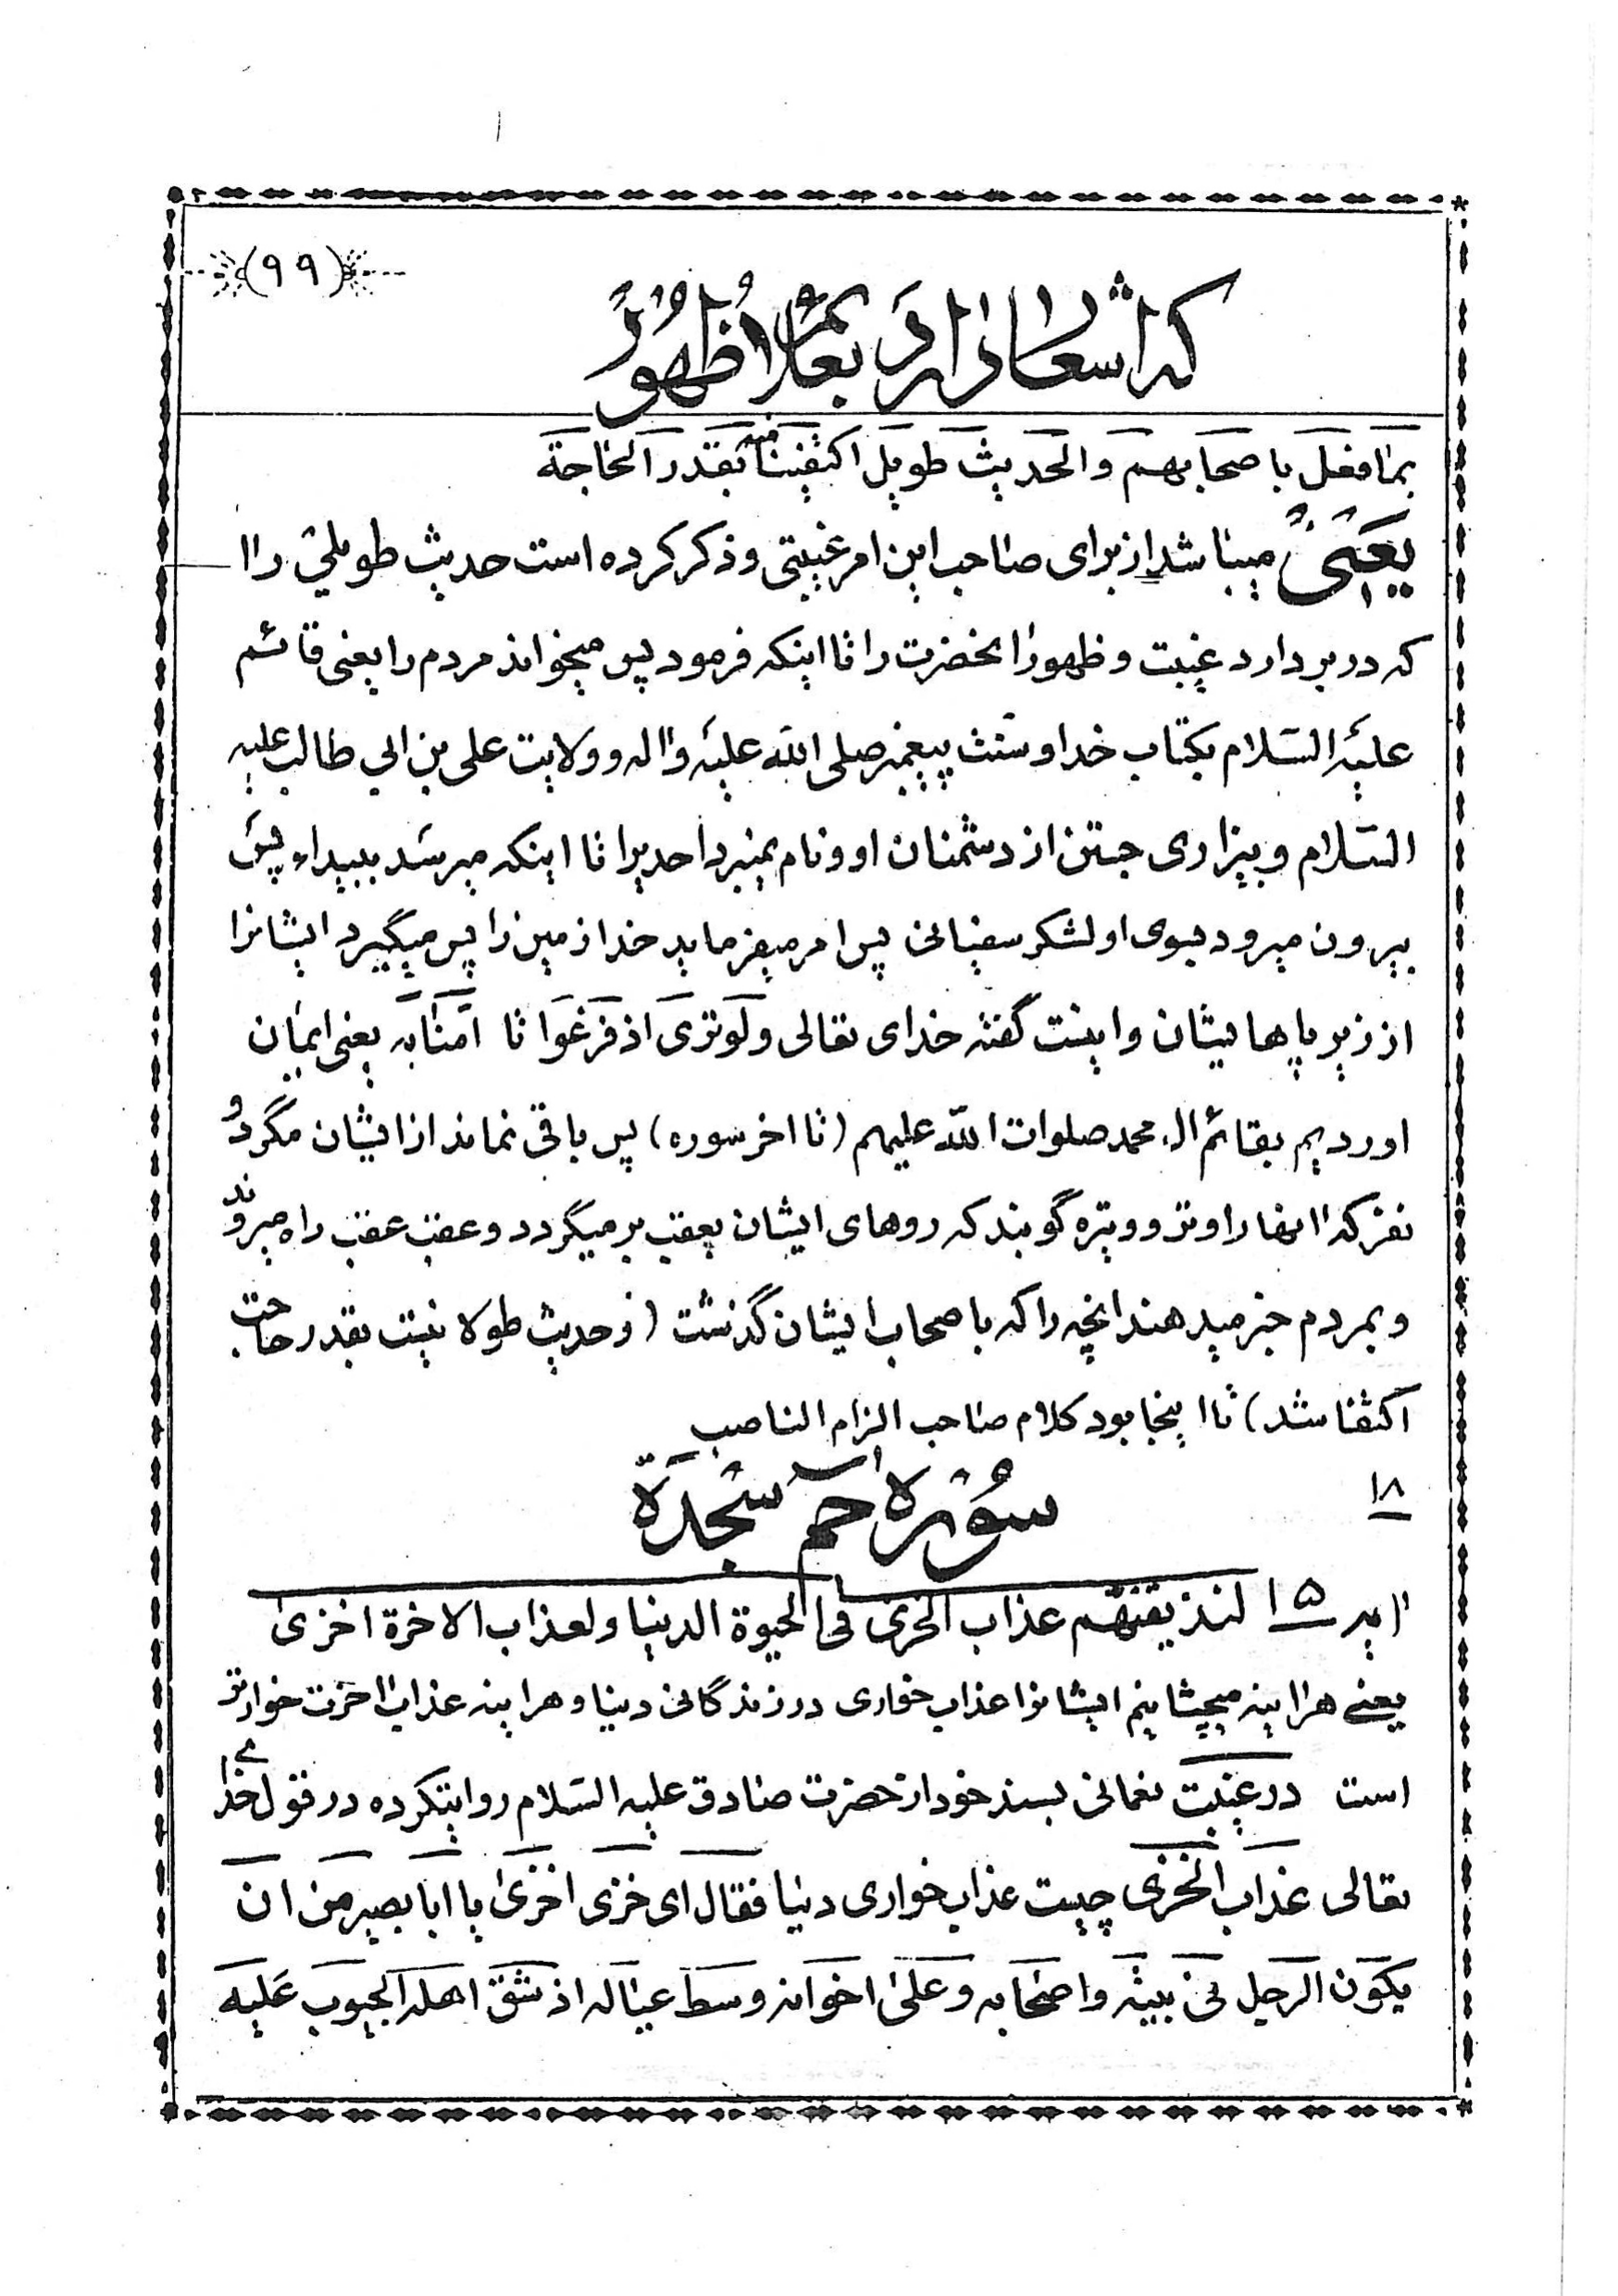 (۹۹)
که اشعار دارد بعلائم ظهور
بما فعل باصحابهم والحدیث طویل اکتفینا منه بقدر الحاجة
یعنی میباشد از برای صاحب این امر غیبتی و ذکر کرده است حدیث طویلی را
که در بر دارد غیبت و ظهور آنحضرت را تا اینکه فرمود پس میخواند مردم را یعنی قائم
علیه السلام بکتاب خدا و سنت پیغمبر صلی الله علیه و اله و ولایت علی بن ابی طالب علیه
السلام و بیزاری جستن از دشمنان او و نام نمیبرد احدیرا تا اینکه میرسد ببیداء پس
بیرون میرود بسوی او لشکر سفیانی پس امر میفرماید خدا زمین را پس میگیرد ایشانرا
از زیر پاهایشان و اینست گفته خدای تعالی ولو تری اذ فزعوا تا امنا به یعنی ایمان
اوردیم بقائم ال محمد صلوات الله علیهم (تا اخر سوره) پس باقی نماند از ایشان مگر دو
نفر که انها را وتر و وتیره گویند که روهای ایشان بعقب بر میگردد و عقب عقب راه میروند
و بمردم خبر میدهند انچه را که باصحاب ایشان گذشت (و حدیث طولانیست بقدر حاجت
اکتفا شد) تا اینجا بود کلام صاحب الزام الناصب
۱۸
سوره حم سجدة
ایه ۱۵ لنذیقنهم عذاب الخزی فی الحیوة الدنیا ولعذاب الاخرة اخزی
یعنی هر اینه میچشانیم ایشانرا عذاب خواری در زندگانی دنیا و هر اینه عذاب اخرت خوارتر
است در غیبت نعمانی بسند خود از حضرت صادق علیه السلام روایتکرده در قول خدای
تعالی عذاب الخزی چیست عذاب خواری دنیا فقال ای خزی اخزی یا ابا بصیر من ان
یکون الرجل فی بیته واصحابه وعلی اخوانه وسط عیاله اذ شق اهله الجیوب علیه